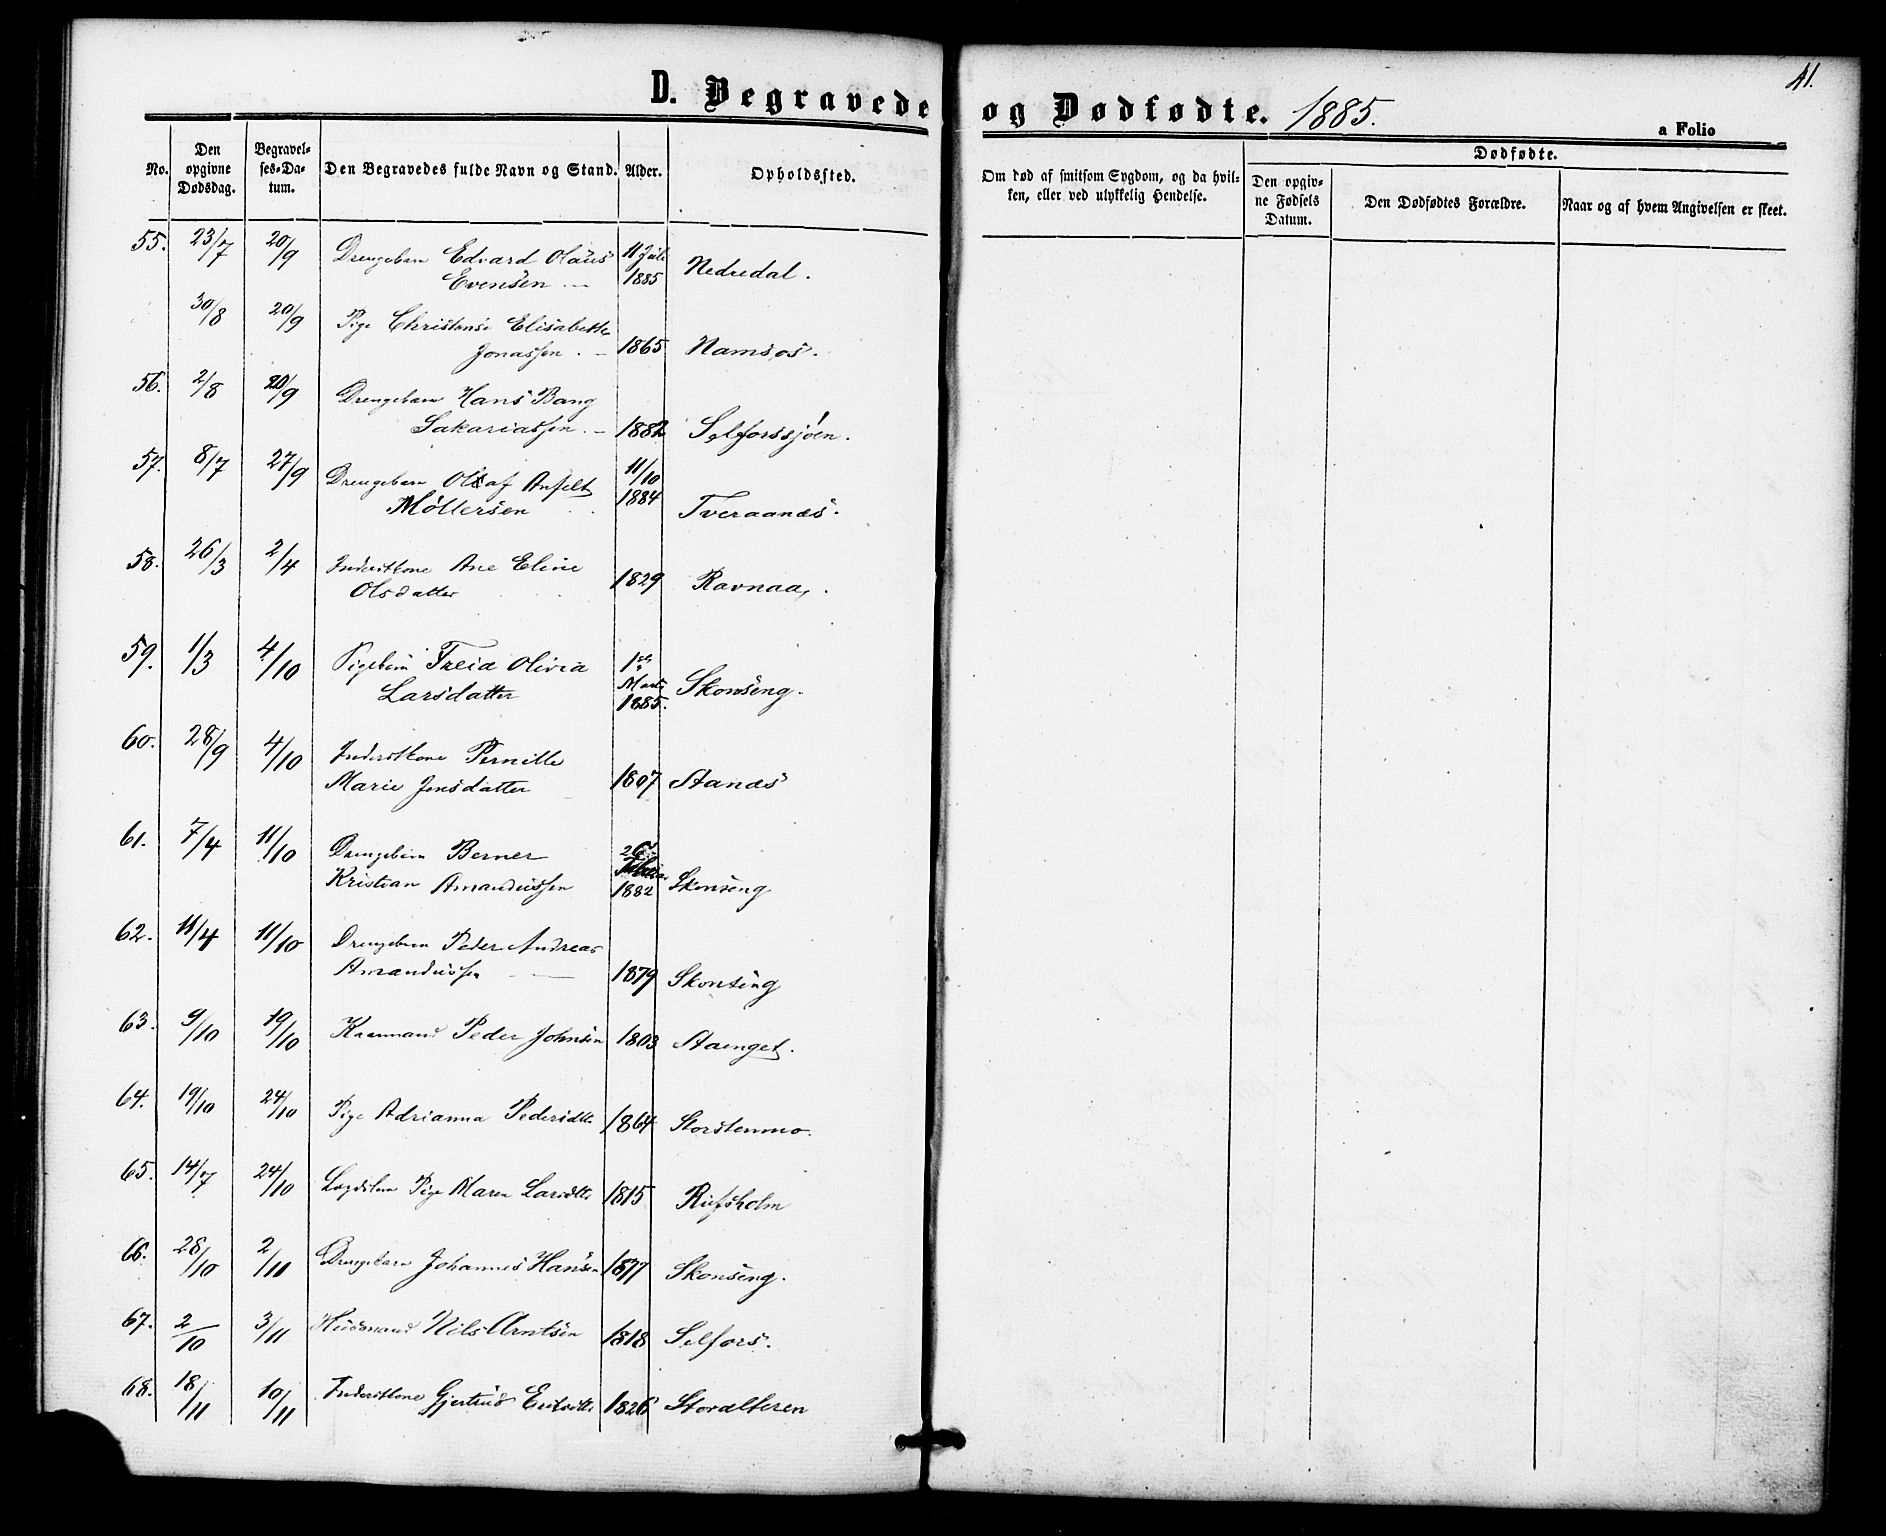 41.
D. Begravede og Dødfødte. 1885.
a Folio
No.
Den opgivne Dødsdag.
Begravel-ses-Da-tum.
Den Begravedes fulde Navn og Stand.
Alder.
Opholdssted.
Om død af smitsom Sygdom, og da hvil-
ken, eller ved ulykkelig Hendelse.
Dødfødte.
Den opgiv-ne Fødsels Datum.
Den Dødfødtes Forældre.
Naar og af hvem Angivelsen er skeet.
55. 23/7 20/9 Drengebarn Edvard Olaus 11 Juli
Evensen 1885 Nedredal.
30/8 20/9 Pige Christense Elisabette
Jonassen 1865 Namsos.
56. 2/8 20/9 Drengebarn Hans Bang
Sakariassen 1882 Selforssjøen.
57. 8/7 27/9 Drengebarn Olaf 11/10
Møllersen 1884 Tveraanes.
58. 26/3 2/4 Inderstkone Ane Eline
Olsdatter 1829 Ravnaa.
59. 1/3 4/10 Pigebarn Freia Olivia 1ste
Larsdatter Marts 1885. Skonseng.
60. 28/9 4/10 Inderstkone Pernille
Marie Jensdatter 1807 Stanæs
61. 7/4 11/10 Drengebarn Berner 26
Kristian Amandussen 1882 Skonseng
62. 11/4 11/10 Drengebarn Peder Andreas
Amandussen 1879 Skonseng
63. 9/10 19/10 Kaarmand Peder Johnsen 1803 Staenget.
64. 19/10 24/10 Pige Adrianna Pedersdtr 1864 Storstenmo.
65. 14/7 24/10 Lægdslem Pige Maren Larsdtr 1815
66. 28/10 2/11 Drengebarn Johannes Hansen 1877 Skonseng.
67. 2/10 3/11 Huusmand Nils Arntsen 1818 Selfors.
68. 18/11 10/11 Inderstkone Gjertrud 1826 Storalteren